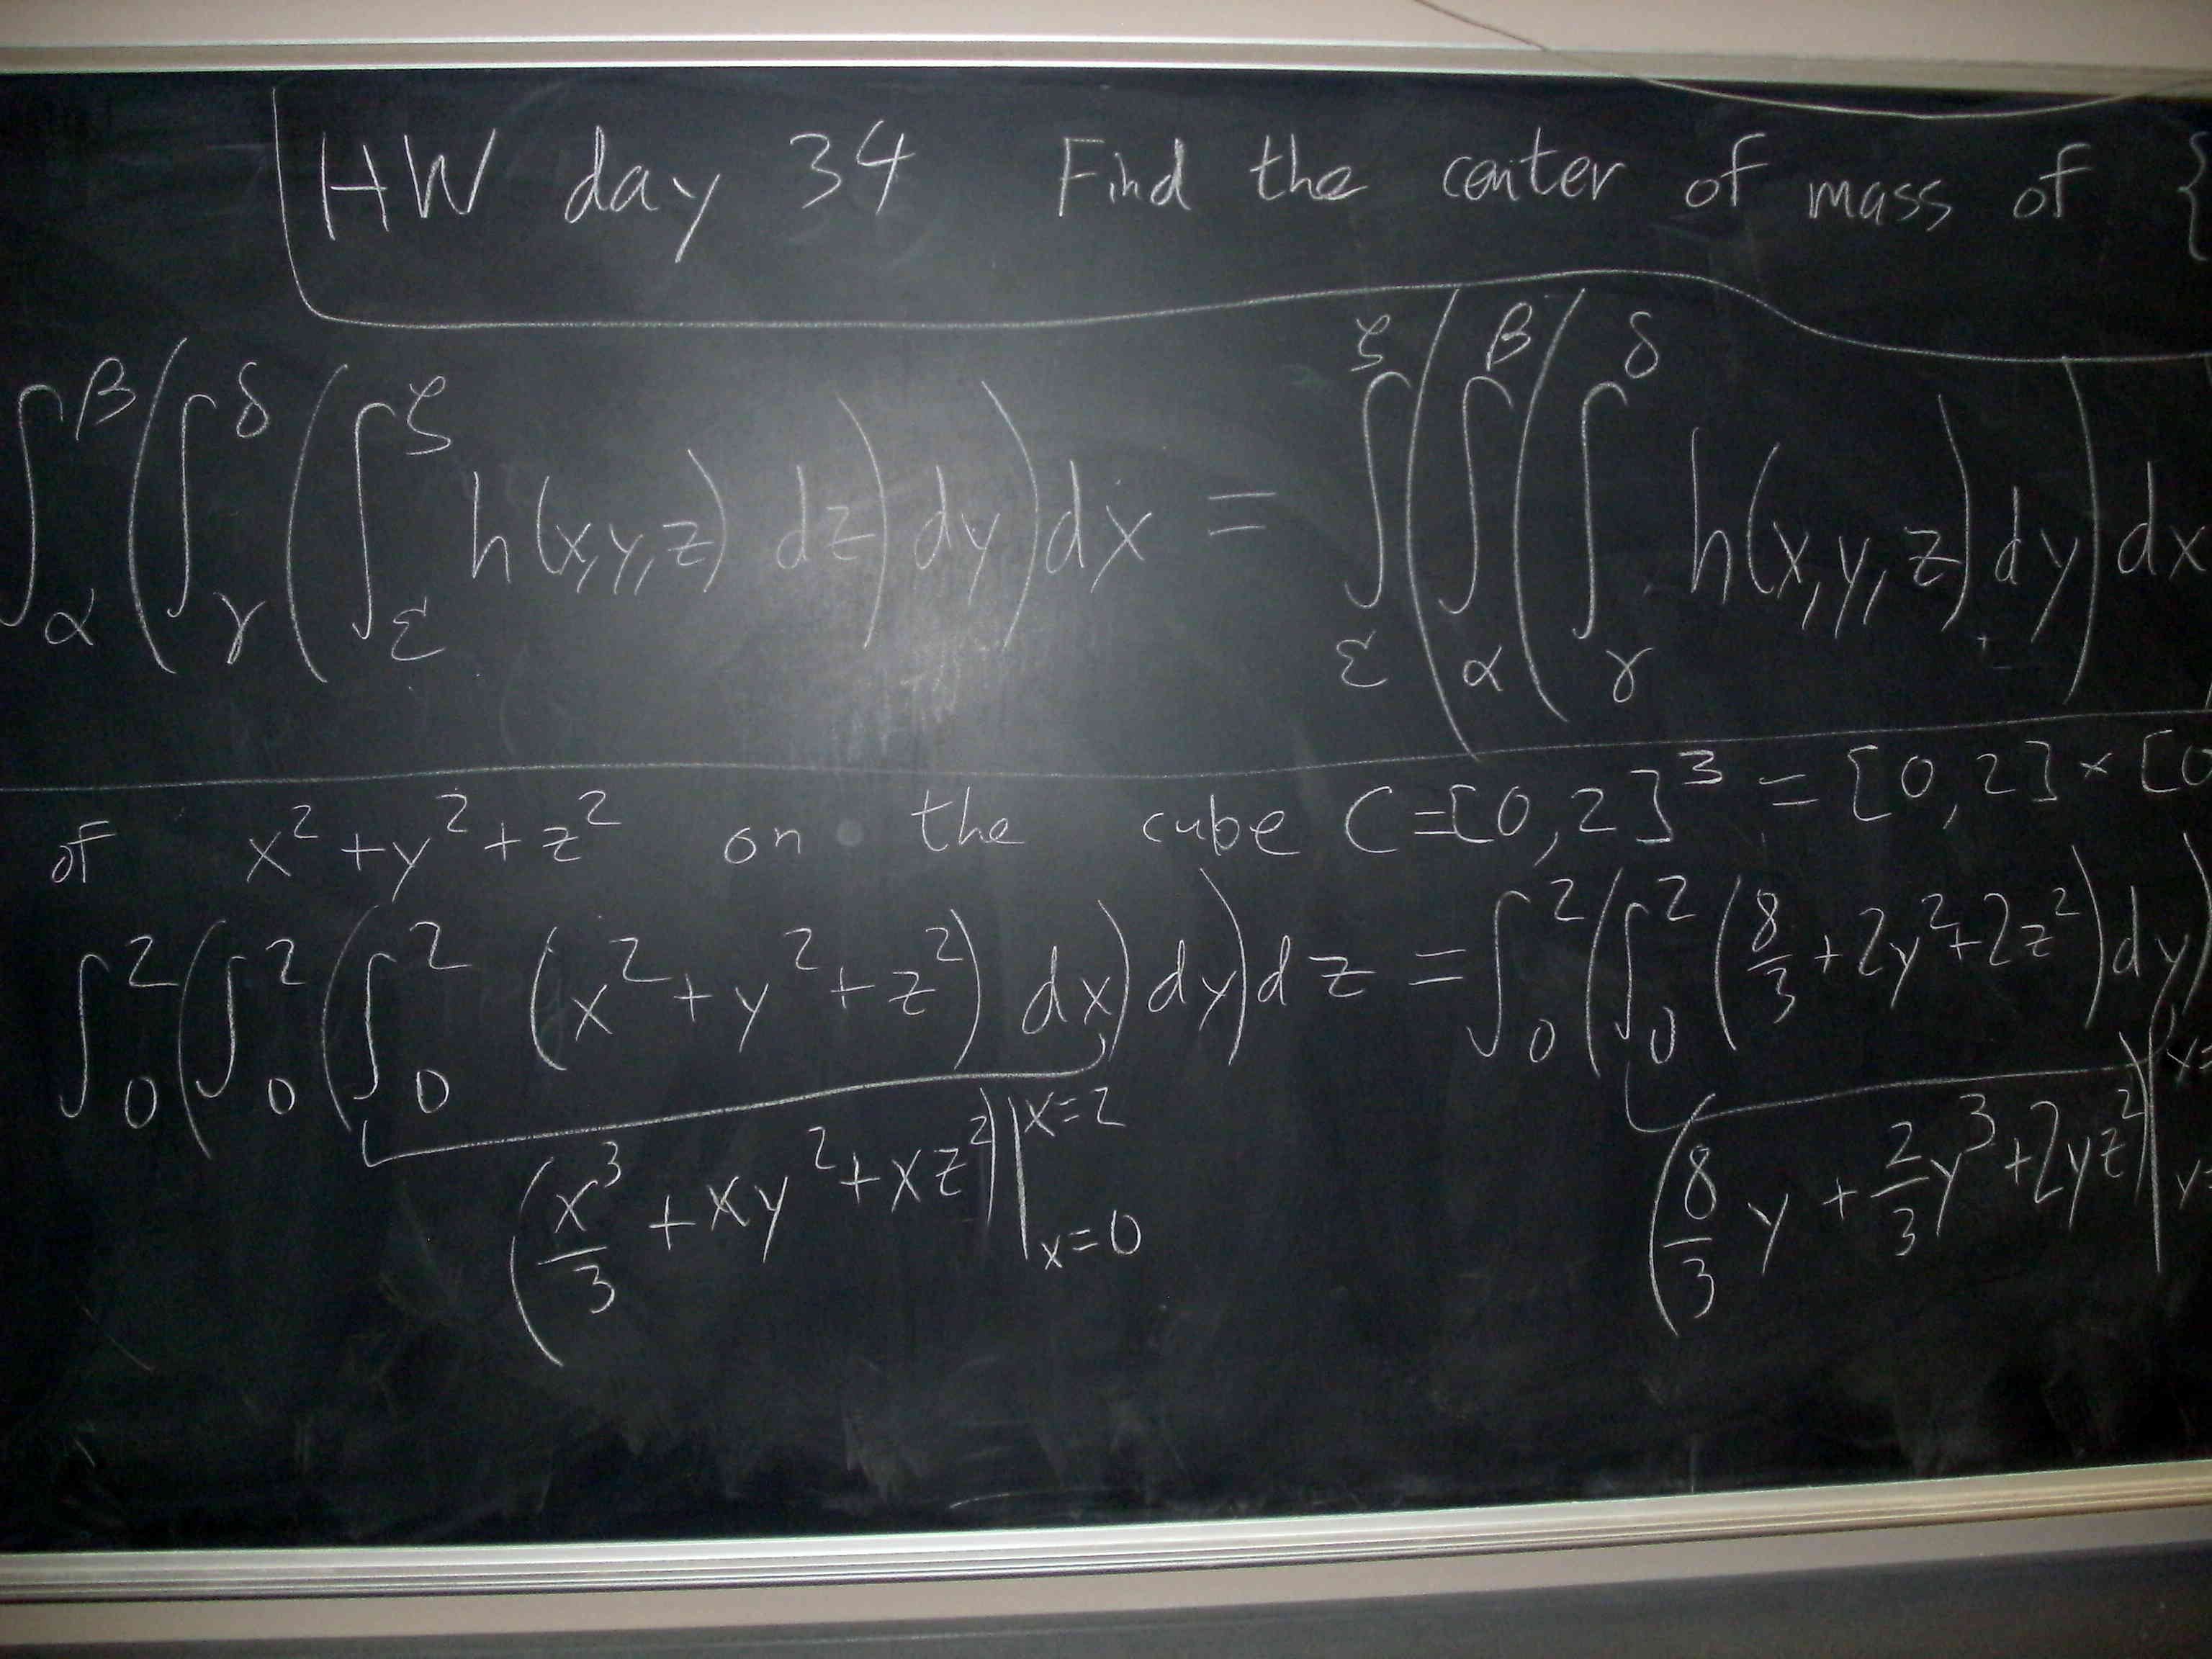 HW day 34 Find the center of mass of {
∫_α^β (∫_γ^δ (∫_ε^ζ h(x,y,z) dz) dy) dx = ∫_ε^ζ (∫_α^β (∫_γ^δ h(x,y,z) dy) dx
of x² + y² + z² on the cube C = [0,2]³ = [0,2] × [0
∫_0^2 (∫_0^2 (∫_0^2 (x² + y² + z²) dx) dy) dz = ∫_0^2 (∫_0^2 (8/3 + 2y² + 2z²) dy)
(x³/3 + xy² + xz²)|_{x=0}^{x=2} (8/3 y + 2/3 y³ + 2yz²)|_{y=